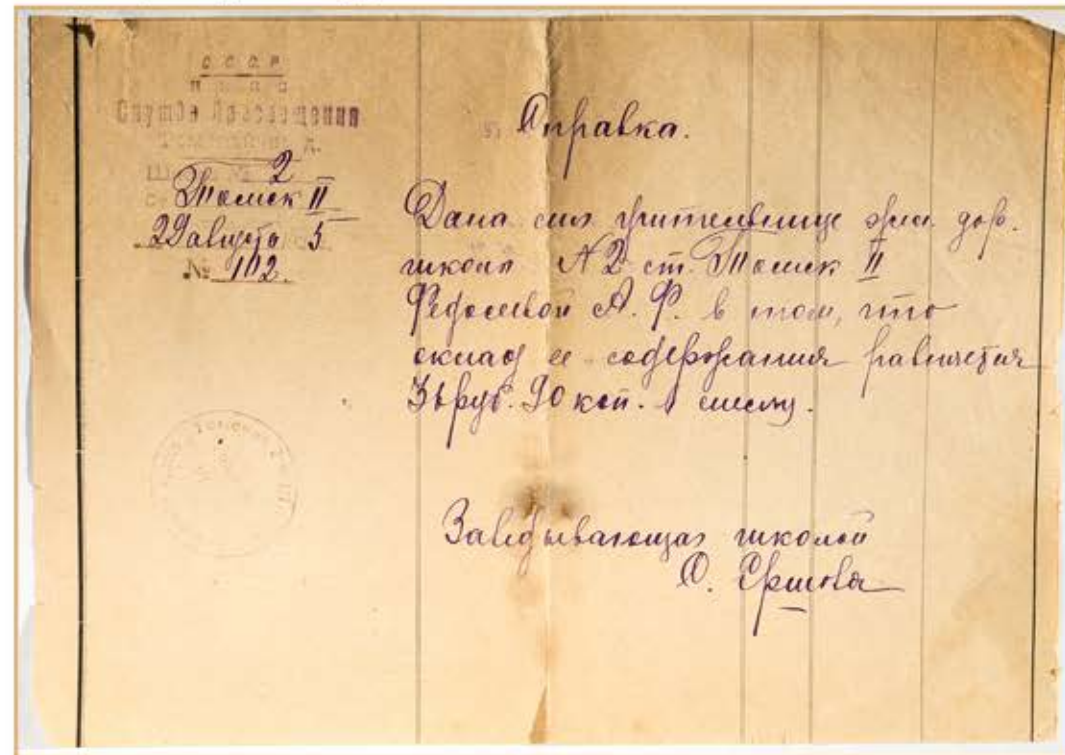 С С С Р
Служба Просвещения
№ 2
Томск II
29 августа 5
№ 112.
Справка.
Дана сия учительнице жел. дор.
школы № 2 ст. Томск II
Федосеевой А. Ф. в том, что
оклад ее содержания равняется
руб. 90 коп. в месяц.
Заведывающая школой
О. Ершова